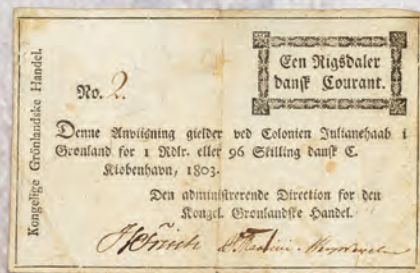 Kongelige Grönlandske Handel.
No. 2.
Een Rigsdaler
dansk Courant.
Denne Anviisning gielder ved Colonien Julianehaab i
Grønland for 1 Rdlr. eller 96 Skilling dansk C.
Kiøbenhavn, 1803.
Den administrerende Direction for den
Kongel. Grønlandske Handel.